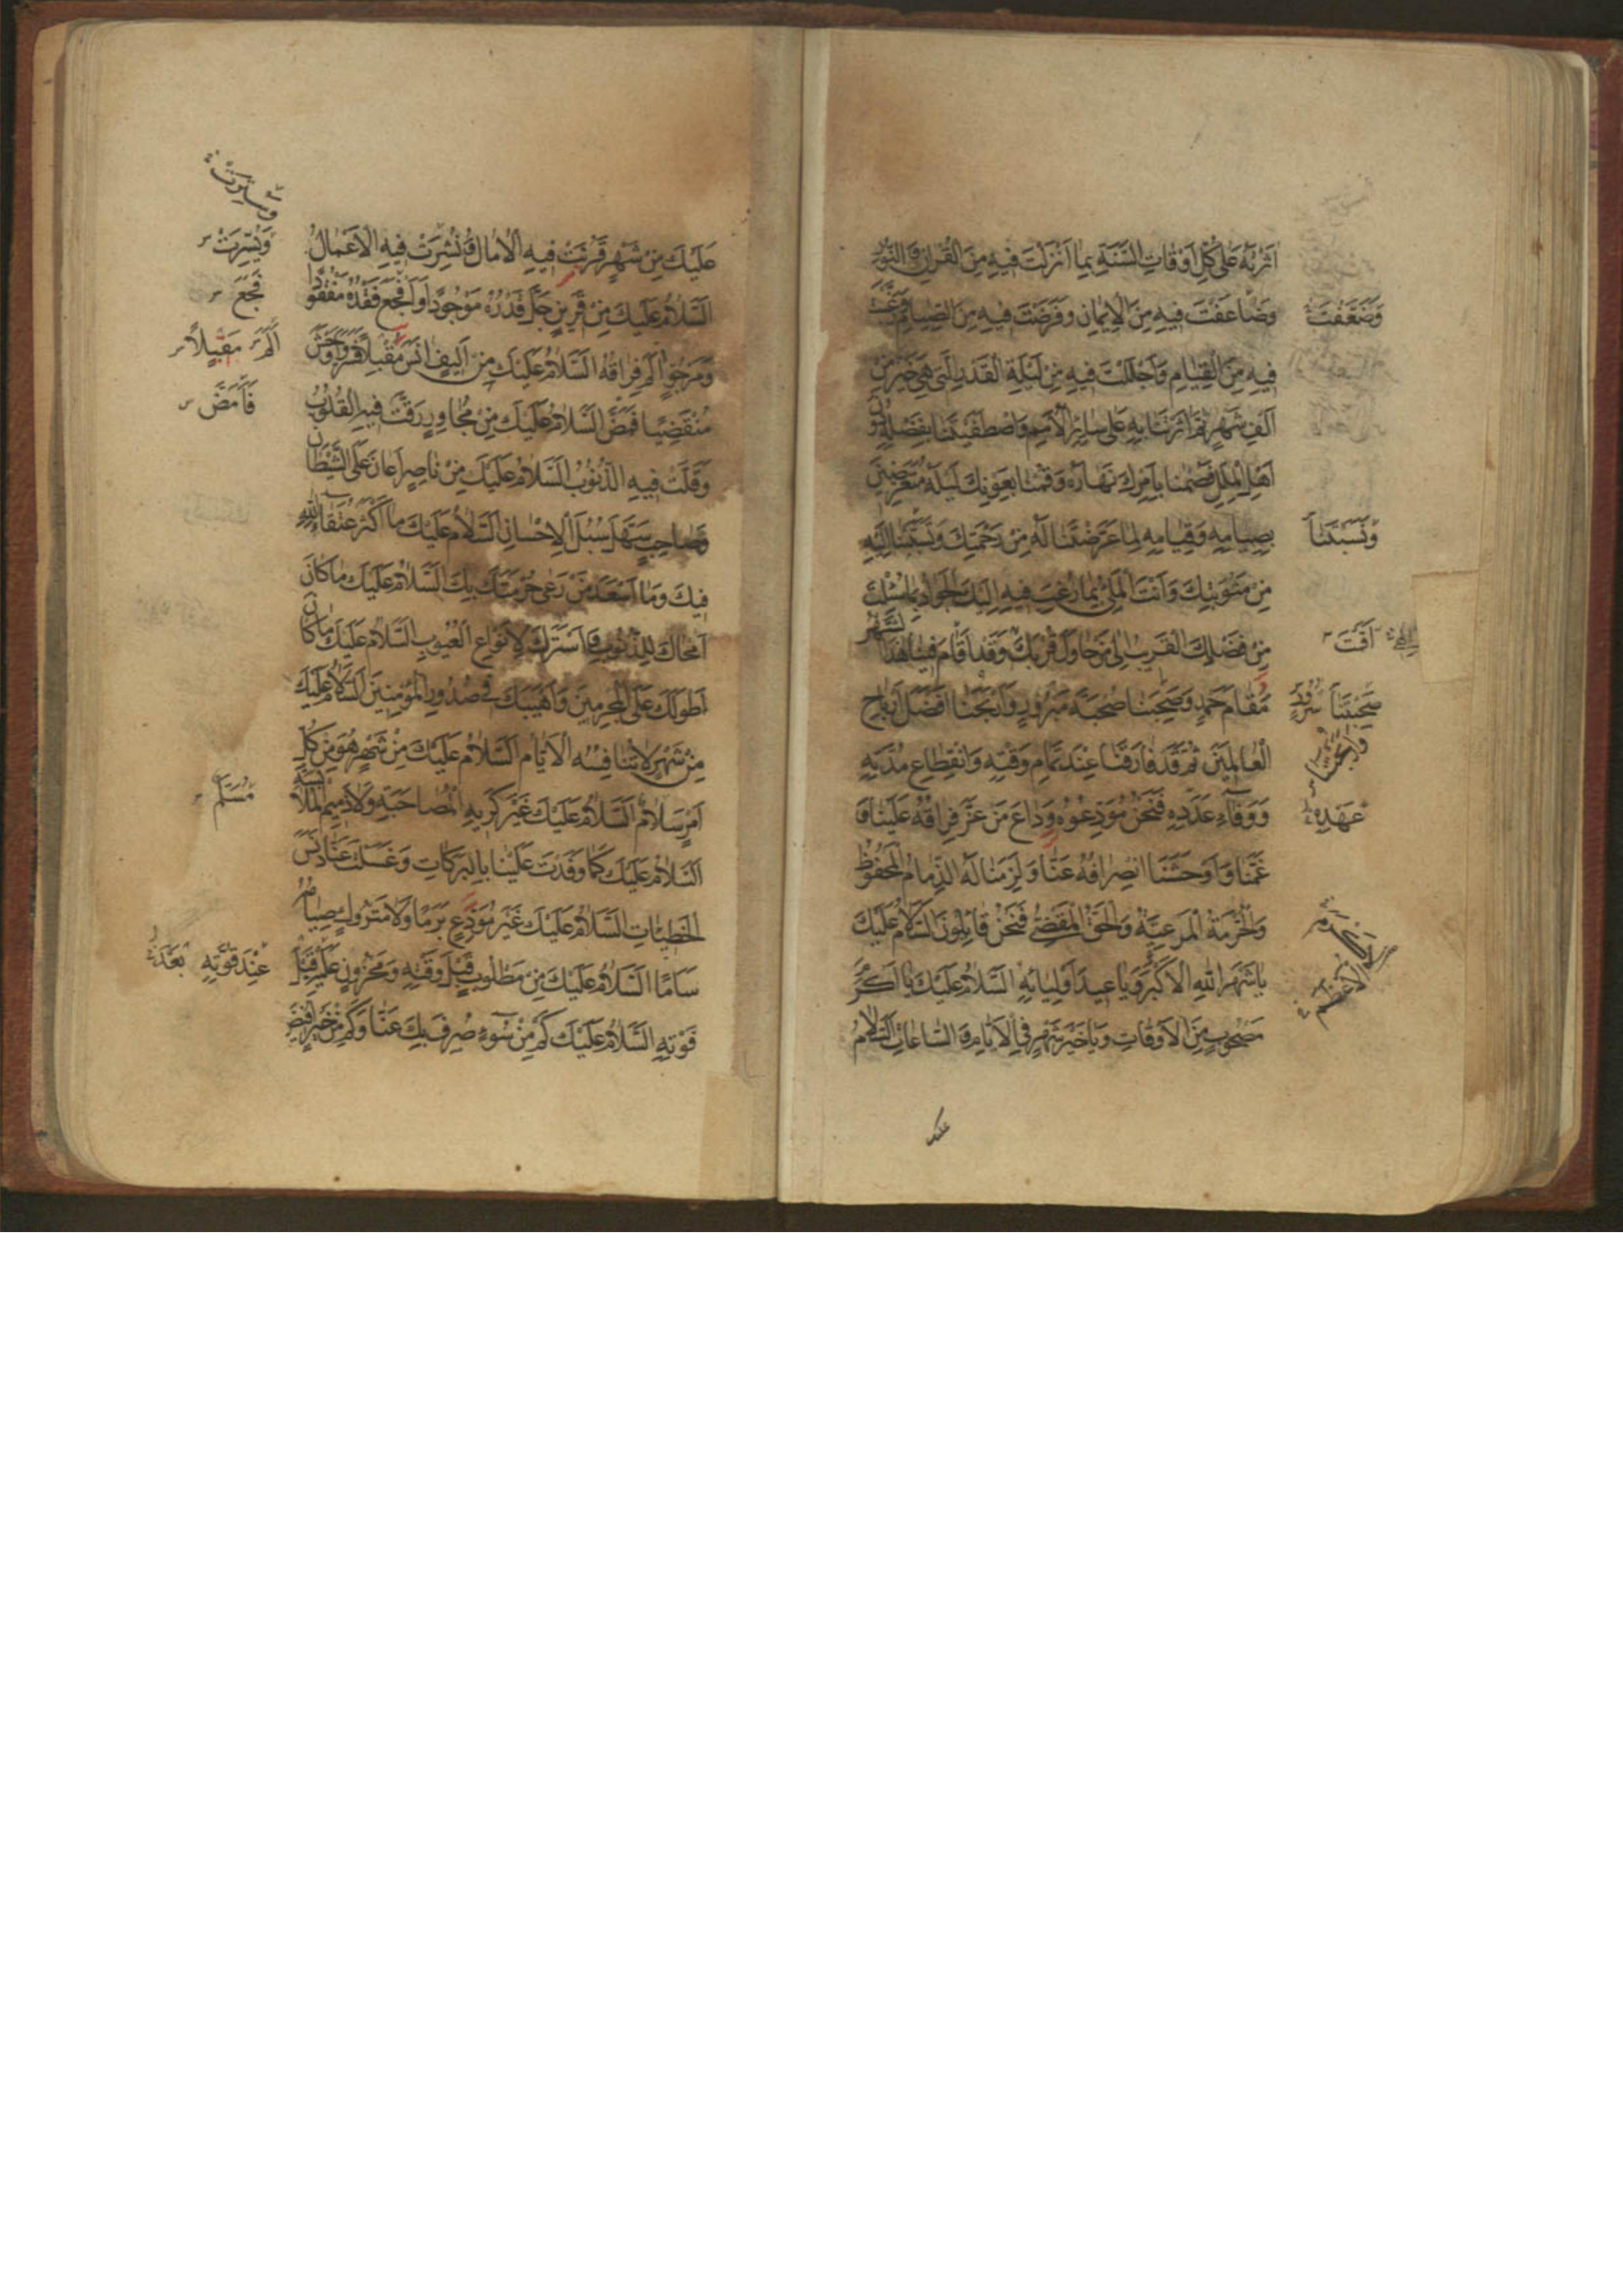 اٰثَرْتَهُ عَلٰى كُلِّ اَوْقَاتِ السَّنَةِ بِمَا اَنْزَلْتَ فِيهِ مِنَ الْقُرْاٰنِ وَ النُّوْرِ
وَضَاعَفْتَ فِيهِ مِنَ الْاِيْمَانِ وَفَرَضْتَ فِيهِ مِنَ الصِّيَامِ وَرَغَّبْتَ
وَضَعَّفْتَ
فِيهِ مِنَ الْقِيَامِ وَاَجْلَلْتَ فِيهِ مِنْ لَيْلَةِ الْقَدْرِ الَّتِي هِيَ خَيْرٌ مِنْ
اَلْفِ شَهْرٍ ثُمَّ اٰثَرْتَنَا بِهِ عَلٰى سَائِرِ الْاُمَمِ وَاصْطَفَيْتَنَا بِفَضْلِهِ دُوْنَ
اَهْلِ الْمِلَلِ فَصُمْنَا بِاَمْرِكَ نَهَارَهُ وَقُمْنَا بِعَوْنِكَ لَيْلَهُ مُتَعَرِّضِينَ
بِصِيَامِهِ وَقِيَامِهِ لِمَا عَرَّضْتَنَا لَهُ مِنْ رَحْمَتِكَ وَتَسَبَّبْنَا اِلَيْهِ
وَنَسَبْتَنَا
مِنْ مَثُوْبَتِكَ وَاَنْتَ الْمَلِيُّ بِمَا رُغِبَ فِيهِ اِلَيْكَ الْجَوَادُ بِمَا سُئِلْتَ
مِنْ فَضْلِكَ الْقَرِيْبُ اِلٰى مَنْ حَاوَلَ قُرْبَكَ وَقَدْ اَقَامَ فِيْنَا هٰذَا الشَّهْرُ
مُقَامَ حَمْدٍ وَصَحِبَنَا صُحْبَةَ مَبْرُوْرٍ وَاَرْبَحَنَا اَفْضَلَ اَرْبَاحِ
الْعَالَمِينَ ثُمَّ قَدْ فَارَقَنَا عِنْدَ تَمَامِ وَقْتِهِ وَانْقِطَاعِ مُدَّتِهِ
وَوَفَاءِ عَدَدِهِ فَنَحْنُ مُوَدِّعُوْهُ وِدَاعَ مَنْ عَزَّ فِرَاقُهُ عَلَيْنَا وَ
عَهْدِهِ
غَمَّنَا وَاَوْحَشَنَا انْصِرَافُهُ عَنَّا وَلَزِمَنَا لَهُ الذِّمَامُ الْمَحْفُوْظُ
وَالْحُرْمَةُ الْمَرْعِيَّةُ وَالْحَقُّ الْمَقْضِيُّ فَنَحْنُ قَائِلُوْنَ السَّلَامُ عَلَيْكَ
يَا شَهْرَ اللهِ الْاَكْبَرَ وَيَا عِيْدَ اَوْلِيَائِهِ السَّلَامُ عَلَيْكَ يَا اَكْرَمَ
الْاَعْظَمِ
مَصْحُوْبٍ مِنَ الْاَوْقَاتِ وَيَا خَيْرَ شَهْرٍ فِي الْاَيَّامِ وَ السَّاعَاتِ السَّلَامُ
عليك
عَلَيْكَ مِنْ شَهْرٍ قَرُبَتْ فِيهِ الْاٰمَالُ وَنُشِرَتْ فِيهِ الْاَعْمَالُ
وَيُسِّرَتْ
السَّلَامُ عَلَيْكَ مِنْ قَرِيْنٍ جَلَّ قَدْرُهُ مَوْجُوْدًا وَاَفْجَعَ فَقْدُهُ مَفْقُوْدًا
فَجَعَ
وَمَرْجُوٍّ اٰلَمَ فِرَاقُهُ السَّلَامُ عَلَيْكَ مِنْ اَلِيْفٍ اٰنَسَ مُقْبِلًا فَسَرَّ وَاَوْحَشَ
اَلَمُ مُقْبِلًا
مُنْقَضِيًا فَمَضَّ السَّلَامُ عَلَيْكَ مِنْ مُجَاوِرٍ رَقَّتْ فِيهِ الْقُلُوْبُ
فَاَمَضَّ
وَقَلَّتْ فِيهِ الذُّنُوْبُ السَّلَامُ عَلَيْكَ مِنْ نَاصِرٍ اَعَانَ عَلَى الشَّيْطَانِ
وَصَاحِبٍ سَهَّلَ سُبُلَ الْاِحْسَانِ السَّلَامُ عَلَيْكَ مَا اَكْثَرَ عُتَقَاءَ اللهِ
فِيْكَ وَمَا اَسْعَدَ مَنْ رَعٰى حُرْمَتَكَ بِكَ السَّلَامُ عَلَيْكَ مَا كَانَ
اَمْحَاكَ لِلذُّنُوْبِ وَاَسْتَرَكَ لِاَنْوَاعِ الْعُيُوْبِ السَّلَامُ عَلَيْكَ مَا كَانَ
اَطْوَلَكَ عَلَى الْمُجْرِمِينَ وَاَهْيَبَكَ فِي صُدُوْرِ الْمُؤْمِنِينَ السَّلَامُ عَلَيْكَ
مِنْ شَهْرٍ لَا تُنَافِسُهُ الْاَيَّامُ السَّلَامُ عَلَيْكَ مِنْ شَهْرٍ هُوَ مِنْ كُلِّ
اَمْرٍ سَلَامٌ السَّلَامُ عَلَيْكَ غَيْرَ كَرِيْهِ الْمُصَاحَبَةِ وَلَا ذَمِيْمِ الْمُلَابَسَةِ
السَّلَامُ عَلَيْكَ كَمَا وَفَدْتَ عَلَيْنَا بِالْبَرَكَاتِ وَغَسَلْتَ عَنَّا دَنَسَ
الْخَطِيْئَاتِ السَّلَامُ عَلَيْكَ غَيْرَ مُوَدَّعٍ بَرَمًا وَلَا مَتْرُوْكٍ صِيَامُهُ
سَاَمًا السَّلَامُ عَلَيْكَ مِنْ مَطْلُوْبٍ قَبْلَ وَقْتِهِ وَمَحْزُوْنٍ عَلَيْهِ قَبْلَ
عِنْدَ فَوْتِهِ بَعْدَ
فَوْتِهِ السَّلَامُ عَلَيْكَ كَمْ مِنْ سُوْءٍ صُرِفَ بِكَ عَنَّا وَكَمْ مِنْ خَيْرٍ اُفِيْضَ